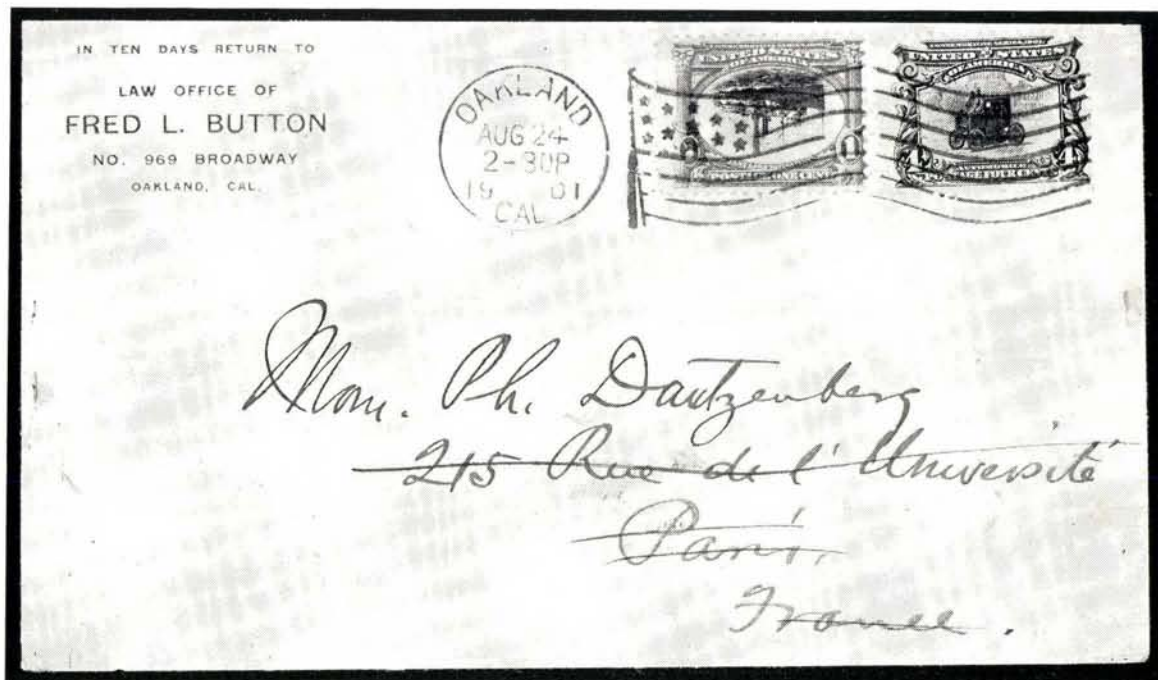 IN TEN DAYS RETURN TO
LAW OFFICE OF
FRED L. BUTTON
NO. 969 BROADWAY
OAKLAND, CAL.
OAKLAND
AUG 24
2-30P
1901
CAL
UNITED STATES
OF AMERICA
1
POSTAGE ONE CENT
UNITED STATES
OF AMERICA
4
4
POSTAGE FOUR CENTS
Mon. Ph. Dautzenberg
215 Rue de l'Université
Paris,
France.